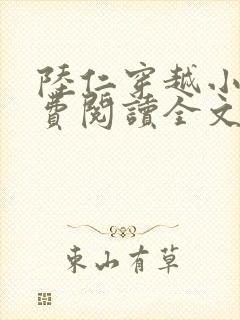 陸仁穿越小
費閱讀全文
東山有草